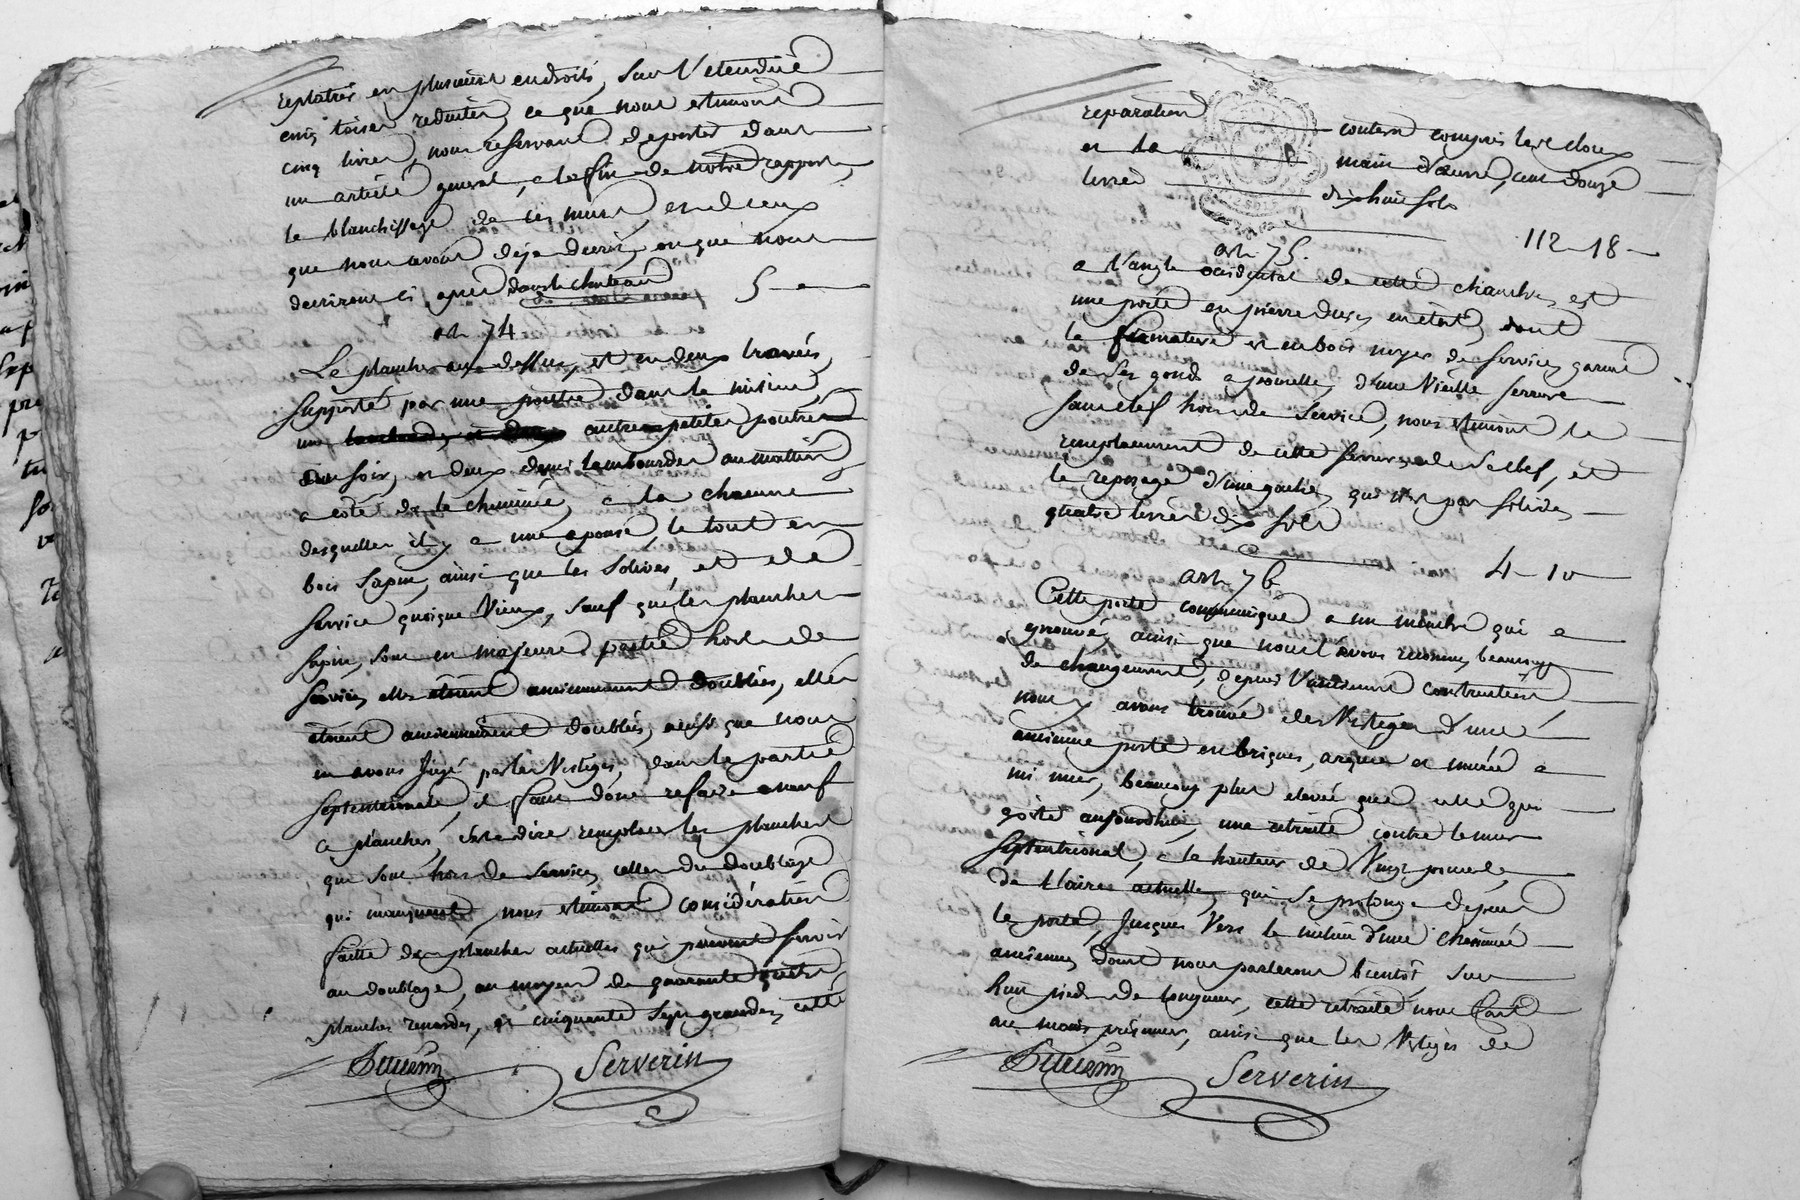 replatrés en plusieurs endroits, sur l'etendue
cinq toises reduites, ce que nous estimons
cinq livres, nous reservant de porter dans
un article general, a la fin de notre rapport,
le blanchissage de ces murs, et de ceux
que nous avons deja decrit, ou que nous
decrirons ci après dans le chateau 5 -
art 74
Le plancher au dessus, est en deux travées,
supporté par une poutre dans le milieu,
une autre petite poutre
du soir, et deux demi lambourdes au mattin
a coté de la cheminée, a la chacune
desquelles il y a une aponse, le tout en
bois sapin, ainsi que les solives, et de
service quoique vieux, sauf que les planches
sapin, sont en majeure partie hors de
service, elles étoient anciennement doublées, elles
étoient anciennement doublés, ainsi que nous
en avons jugé par les vestiges, dans la partie
septentrionale, il faut donc refaire a neuf
ce plancher, c'est a dire remplacer les planches
qui sont hors de service, celles du doublage
qui manquent, nous estimons considération
faitte des planches actuelles qui peuvent servir
au doublage, au moyen de quarante quatre
planches renardes, et cinquante sept grandes, cette
Serverin
reparation contera compris les cloux
et la main d'œuvre, cent douze
livres dix huit sols
112 - 18 -
art 75.
a l'angle occidental de cette chambre, est
une porte en pierre dure, en état, dont
la fermature est en bois noyer de service, garnie
de ses gonds a paumelle, d'une vieille serrure
sans clef hors de service, nous estimons le
remplacement de cette serrure, de sa clef, et
le reposage d'une gache, qui n'est pas solide,
quatre livres dix sols
4 - 10
art 76
Cette porte communique a un membre qui a
eprouvé, ainsi que nous l'avons reconnu, beaucoup
de changement, depuis l'ancienne construction,
nous y avons trouvé des vestiges d'une
ancienne porte en briques, arquée et murée a
mi mur, beaucoup plus elevée que celle qui
existe aujourdhui, une retraite contre le mur
septentrional, a la hauteur de vingt pouces,
de l'aire actuelle, qui se prolonge depuis
la porte, jusques vers le milieu d'une cheminée
ancienne, dont nous parlerons bientôt, sur
huit pieds de longueur, cette retraite nous fait
au moins présumer, ainsi que les vestiges de
Serverin